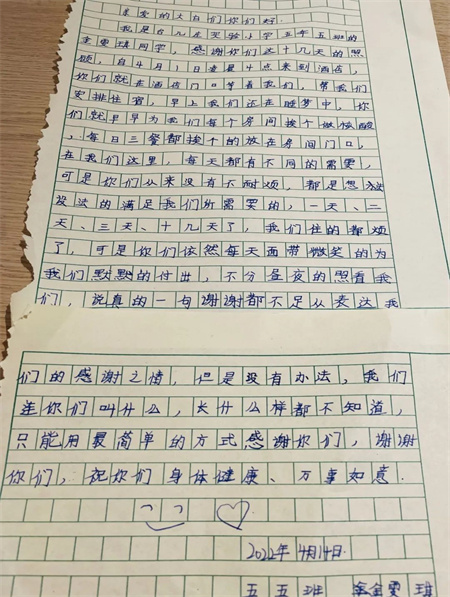 亲爱的大白们你们好.
我是台儿庄实验小学五年五班的
雯琪同学，感谢你们这十几天的照
顾，自4月1日凌晨4点来到酒店，
你们就在酒店门口等着我们，帮我们
安排住宿，早上我们还在睡梦中，你
们就早早为我们每个房间挨个做核酸
，每日三餐都挨个的放在房间门口，
在我们这里，每天都有不同的需要，
可是你们从来没有不耐烦，都是想方
设法的满足我们所需要的，一天、二
天、三天、十几天了，我们住的都烦
了，可是你们依然每天面带微笑的为
我们默默的付出，不分昼夜的照看我
们，说真的一句谢谢都不足以表达我
们的感谢之情，但是没有办法，我们
连你们叫什么，长什么样都不知道，
只能用最简单的方式感谢你们，谢谢
你们，祝你们身体健康、万事如意.
2022年4月14日.
五五班 雯琪